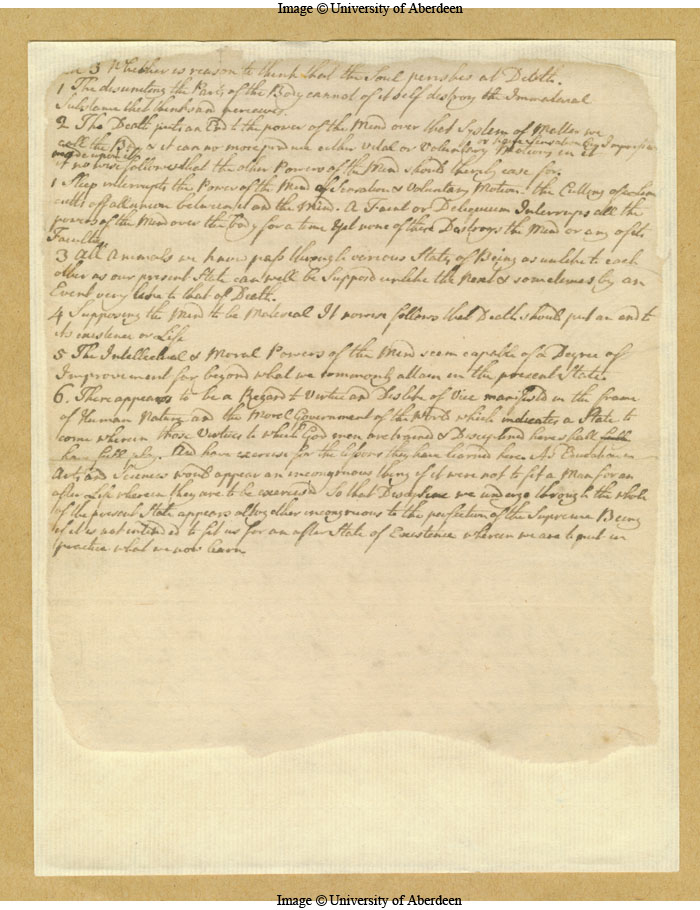 Image © University of Aberdeen
3 Whether is reason to think that the Soul perishes at Death.
1 The disuniting the Parts of the Body cannot of it self destroy the Immaterial
Substance that thinks and perceives
2 The Death puts an End to the power of the Mind over that System of Matter we
or have Sensation by Impressions
call the Body & it can no more produce either Vital or Voluntary Motions in it
made upon it
it no wise follows that the other Powers of the Mind should thereby cease for.
1 Sleep interrupts the Power of the Mind of Sensation & Voluntary Motion. the Cutting of a Limb
cutts off all union between it and the Mind. A Faint or Deliquium Interrups all the
powers of the Mind over the body for a time Yet none of these Destroys the Mind or any of its
Faculties
3 All Animals we have pass through various States of Being as unlike to each
other as our present State can well be Supposd unlike the Next & sometimes by an
Event very like to that of Death.
4 Supposing the Mind to be Material It nowise follows that Death should put an end to
its existence or Life
5 The Intellectual & Moral Powers of the Mind seem capable of a Degree of
Improvement far beyond what we commonly attain in the present State.
6. There appears to be a Regard to Virtue and Dislike of Vice manifestd in the frame
of Human Nature and the Moral Government of the World which indicates a State to
come wherein those Virtues to which God men are trained & Disciplind here shall
have full play. And have exercise for the lessons they have learned here. As Education in
Arts and Sciences would appear an incongruous thing if it were not to fit a Man for an
after Life wherein they are to be exercised So that Discipline we undergo through the whole
of the present State appears altogether incongruous to the perfection of the Supreme Being
if it is not intended to fit us for an after State of Existence wherein we are to put in
practice what we now learn
Image © University of Aberdeen